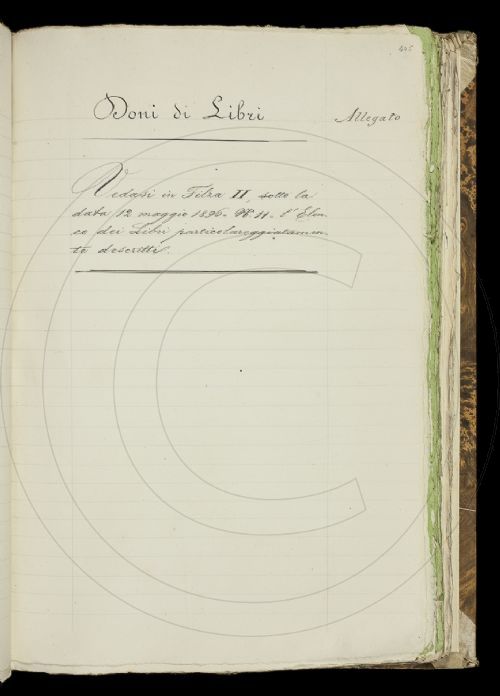 405
Doni di Libri
Allegato
Vedasi in Filza II, sotto la
data 12 maggio 1896 - N. 11 - l'Elen-
co dei Libri particolareggiatamen-
te descritti.